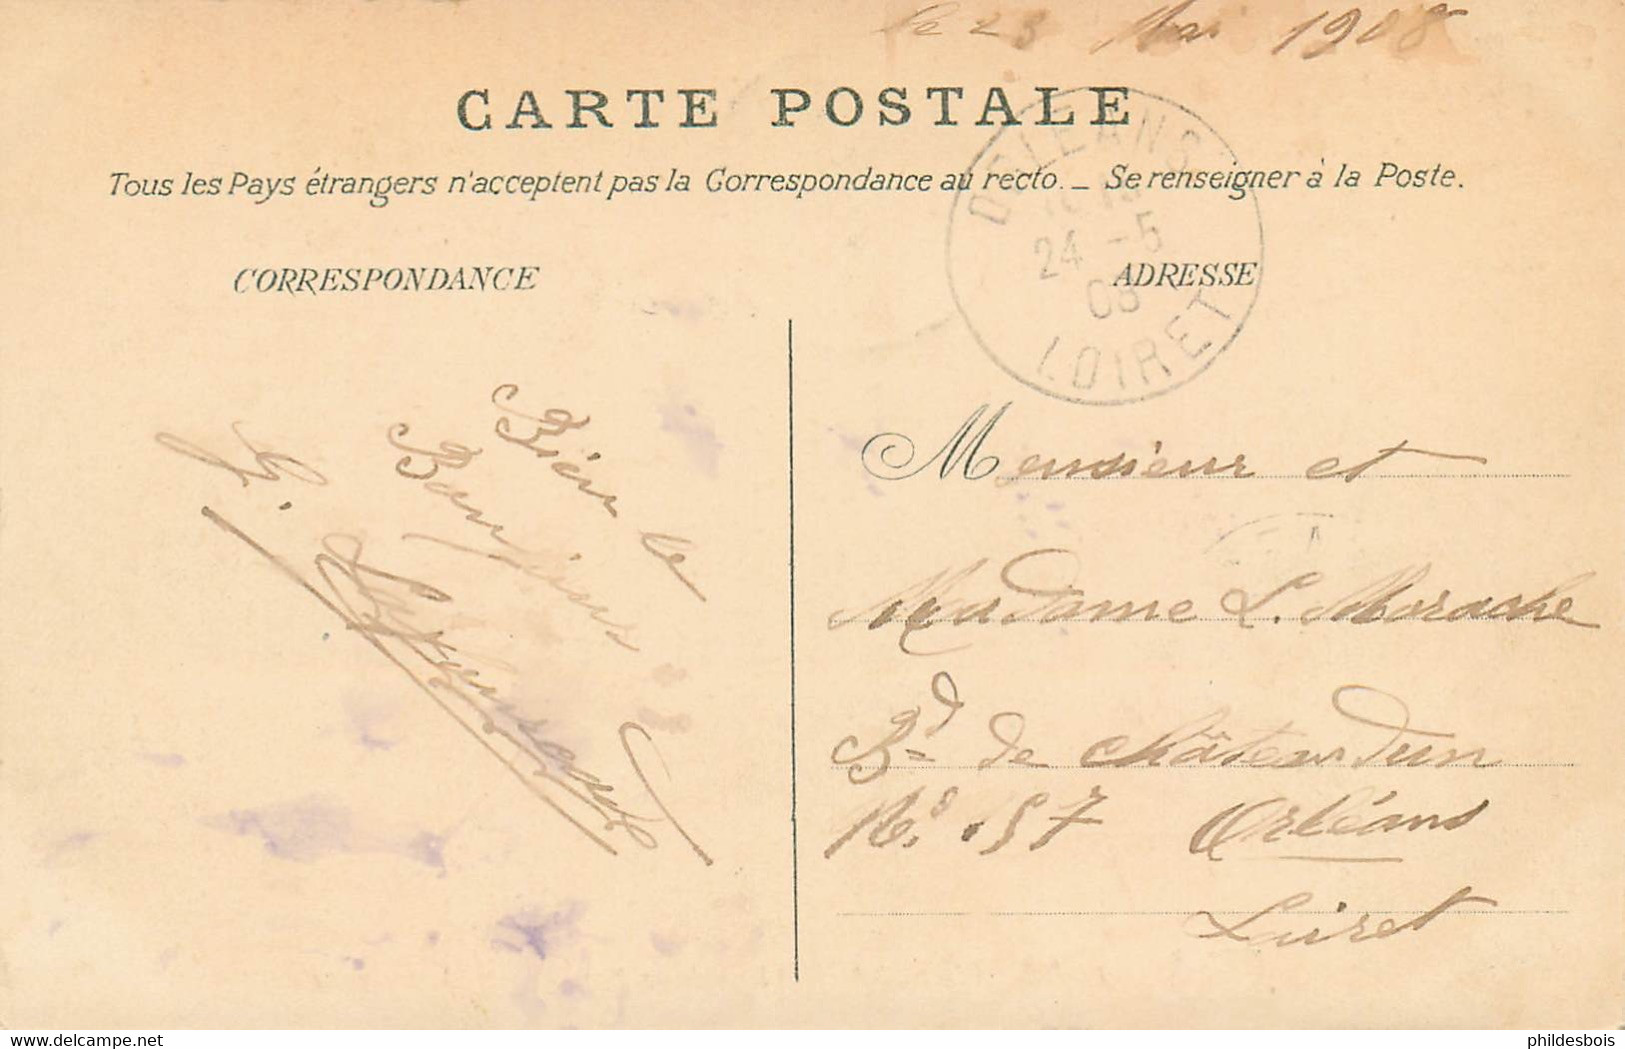 le 23 Mai 1908
CARTE POSTALE
Tous les Pays étrangers n'acceptent pas la Correspondance au recto. _ Se renseigner à la Poste.
ORLEANS
24 -5
08
LOIRET
CORRESPONDANCE
ADRESSE
Bien le
Monsieur et
Madame L. Morache
Bd de Châteaudun
No. 157 Orléans
Loiret
phildesbois